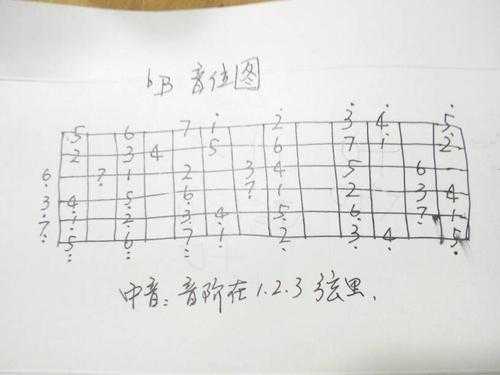 bB 音位图
5 6 7 1 2 3 4 5
2 3 4 5 6 7 1 2
6 7 1 2 3 4 5 6
3 4 5 6 7 1 2 3 4
7 2 3 4 5 6 7 1
5 6 7 1 2 3 4 5
中音:音阶在1.2.3弦里.